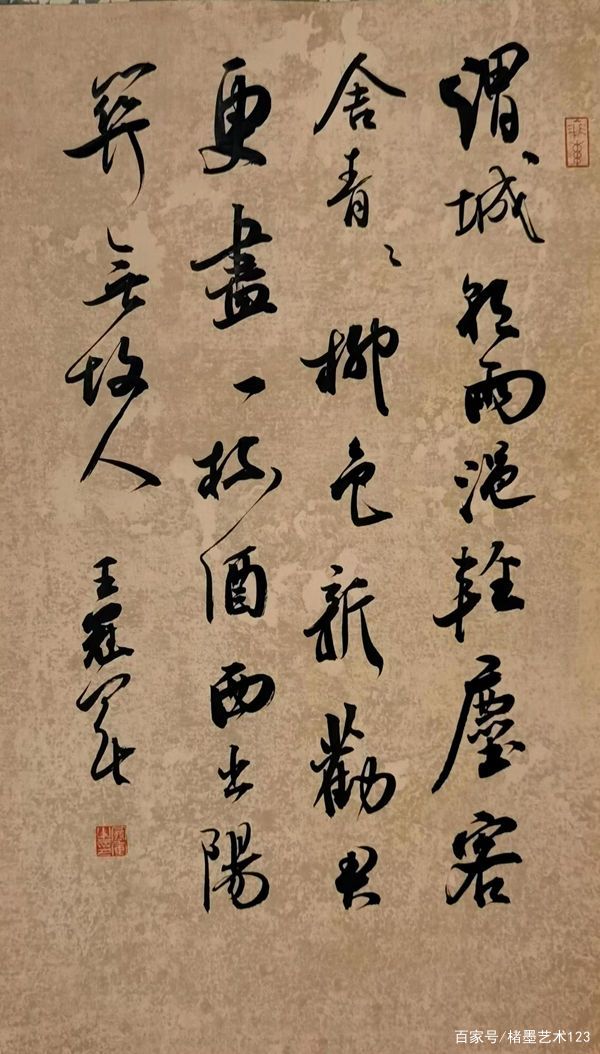 渭城朝雨浥輕塵客
舍青〻柳色新勸君
更盡一杯酒西出陽
關無故人
王冠
百家号/楮墨艺术123